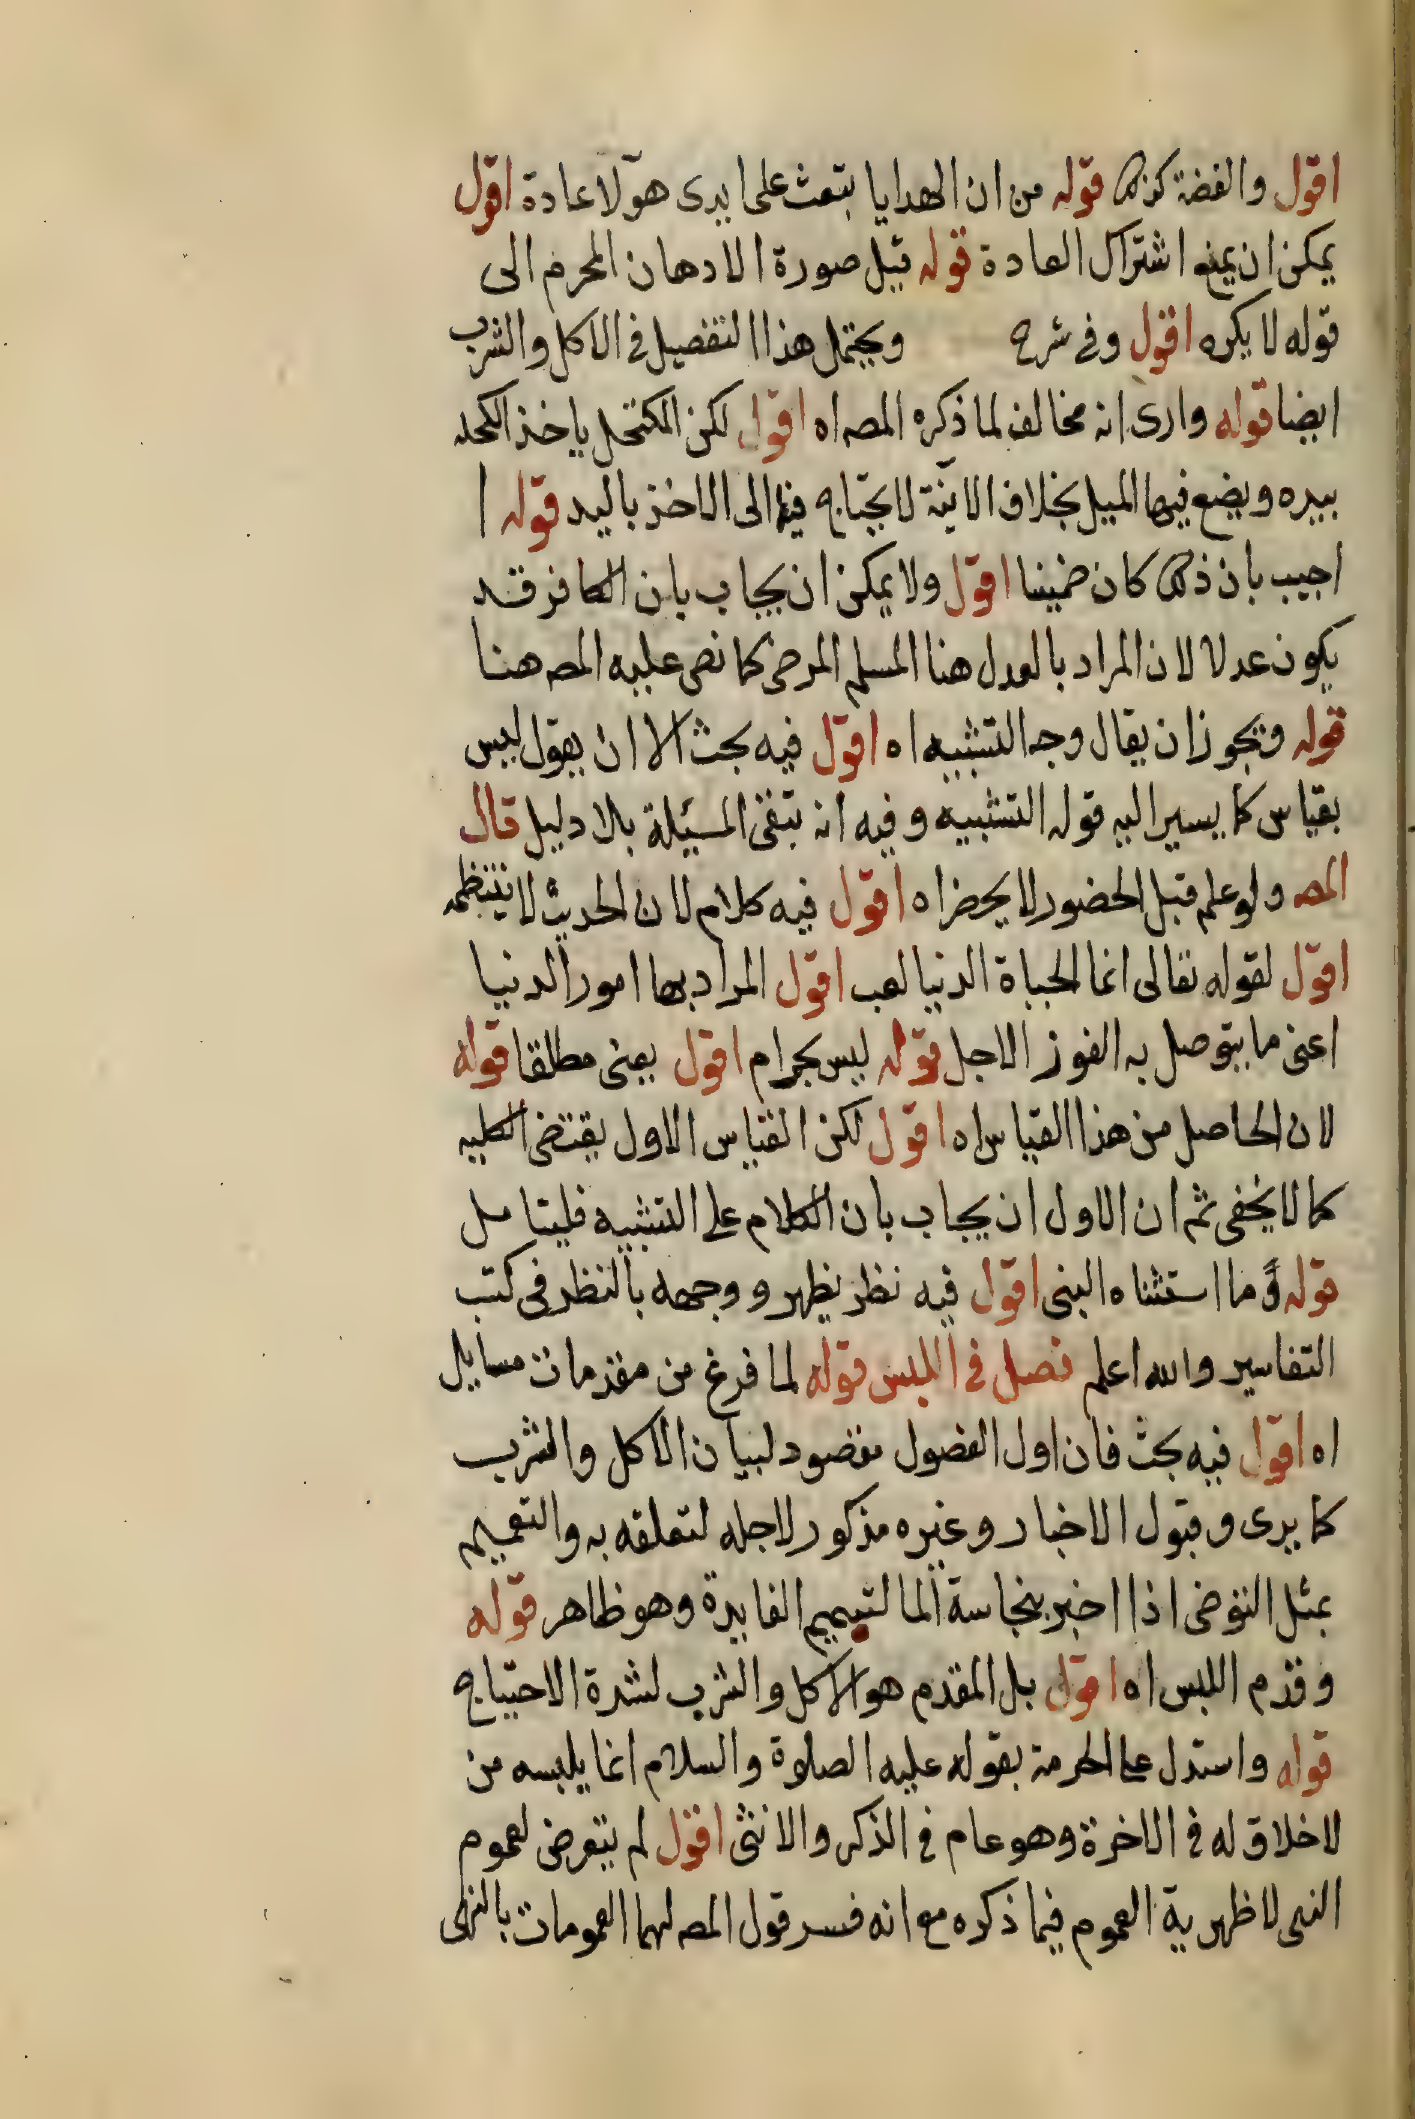 اقول والفضة كذلك قوله من ان الهدايا تبعث على ايدى هؤلا عادة اقول
يمكن ان يمنع اشتراك العادة قوله قيل صورة الادهان المحرم الى
قوله لا يكره اقول وفي شرح ويحتمل هذا التفصيل في الاكل والشرب
ايضا قوله وارى انه مخالف لما ذكره المصه اه اقول لكن المكتحل ياخذ المكحله
بيده ويضع فيها الميل بخلاف الانية لا يحتاج فيها الى الاخذ باليد قوله ا
اجيب بان ذلك كان ضمينا اقول ولا يمكن ان يجاب بان الكافر قد
يكون عدلا لان المراد بالعدل هنا المسلم المرضى كما نص عليه المصه هنا
قوله ويجوز ان يقال وجه التشبيه اه اقول فيه بحث الا ان يقول ليس
بقياس كما يسير اليه قوله التشبيه وفيه انه تبقى المسئلة بلا دليل قال
المصه ولو علم قبل الحضور لا يحضر اه اقول فيه كلام لان الحديث لا ينتظمه
اقول لقوله تعالى انما الحياة الدنيا لعب اقول المراد بها امور الدنيا
اعنى ما يتوصل به الفوز الاجل قوله ليس بحرام اقول يعنى مطلقا قوله
لان الحاصل من هذا القياس اه اقول لكن القياس الاول يقتضى الكليه
كما لا يخفى ثم ان الاول ان يجاب بان الكلام على التشبيه فليتامل
قوله وما استثناه النبى اقول فيه نظر يظهر ووجهه بالنظر فى كتب
التفاسير والله اعلم فصل في اللبس قوله لما فرغ من مقدمات مسايل
اه اقول فيه بحث فان اول الفصول مقصود لبيان الاكل والشرب
كما يرى وقبول الاخبار وغيره مذكور لاجله لتعلقه به والتعميم
بمثل التوضى اذا اخبر بنجاسة الما لتتميم الفايدة وهو ظاهر قوله
وقدم اللبس اه اقول بل المقدم هو الاكل والشرب لشدة الاحتياج
قوله واستدل على الحرمة بقوله عليه الصلاة والسلام انما يلبسه من
لا خلاق له في الاخرة وهو عام في الذكر والانثى اقول لم يتعرض لعموم
النبى لاظهرية العموم فيما ذكره مع انه فسر قول المصه لهما العمومات بالنهى